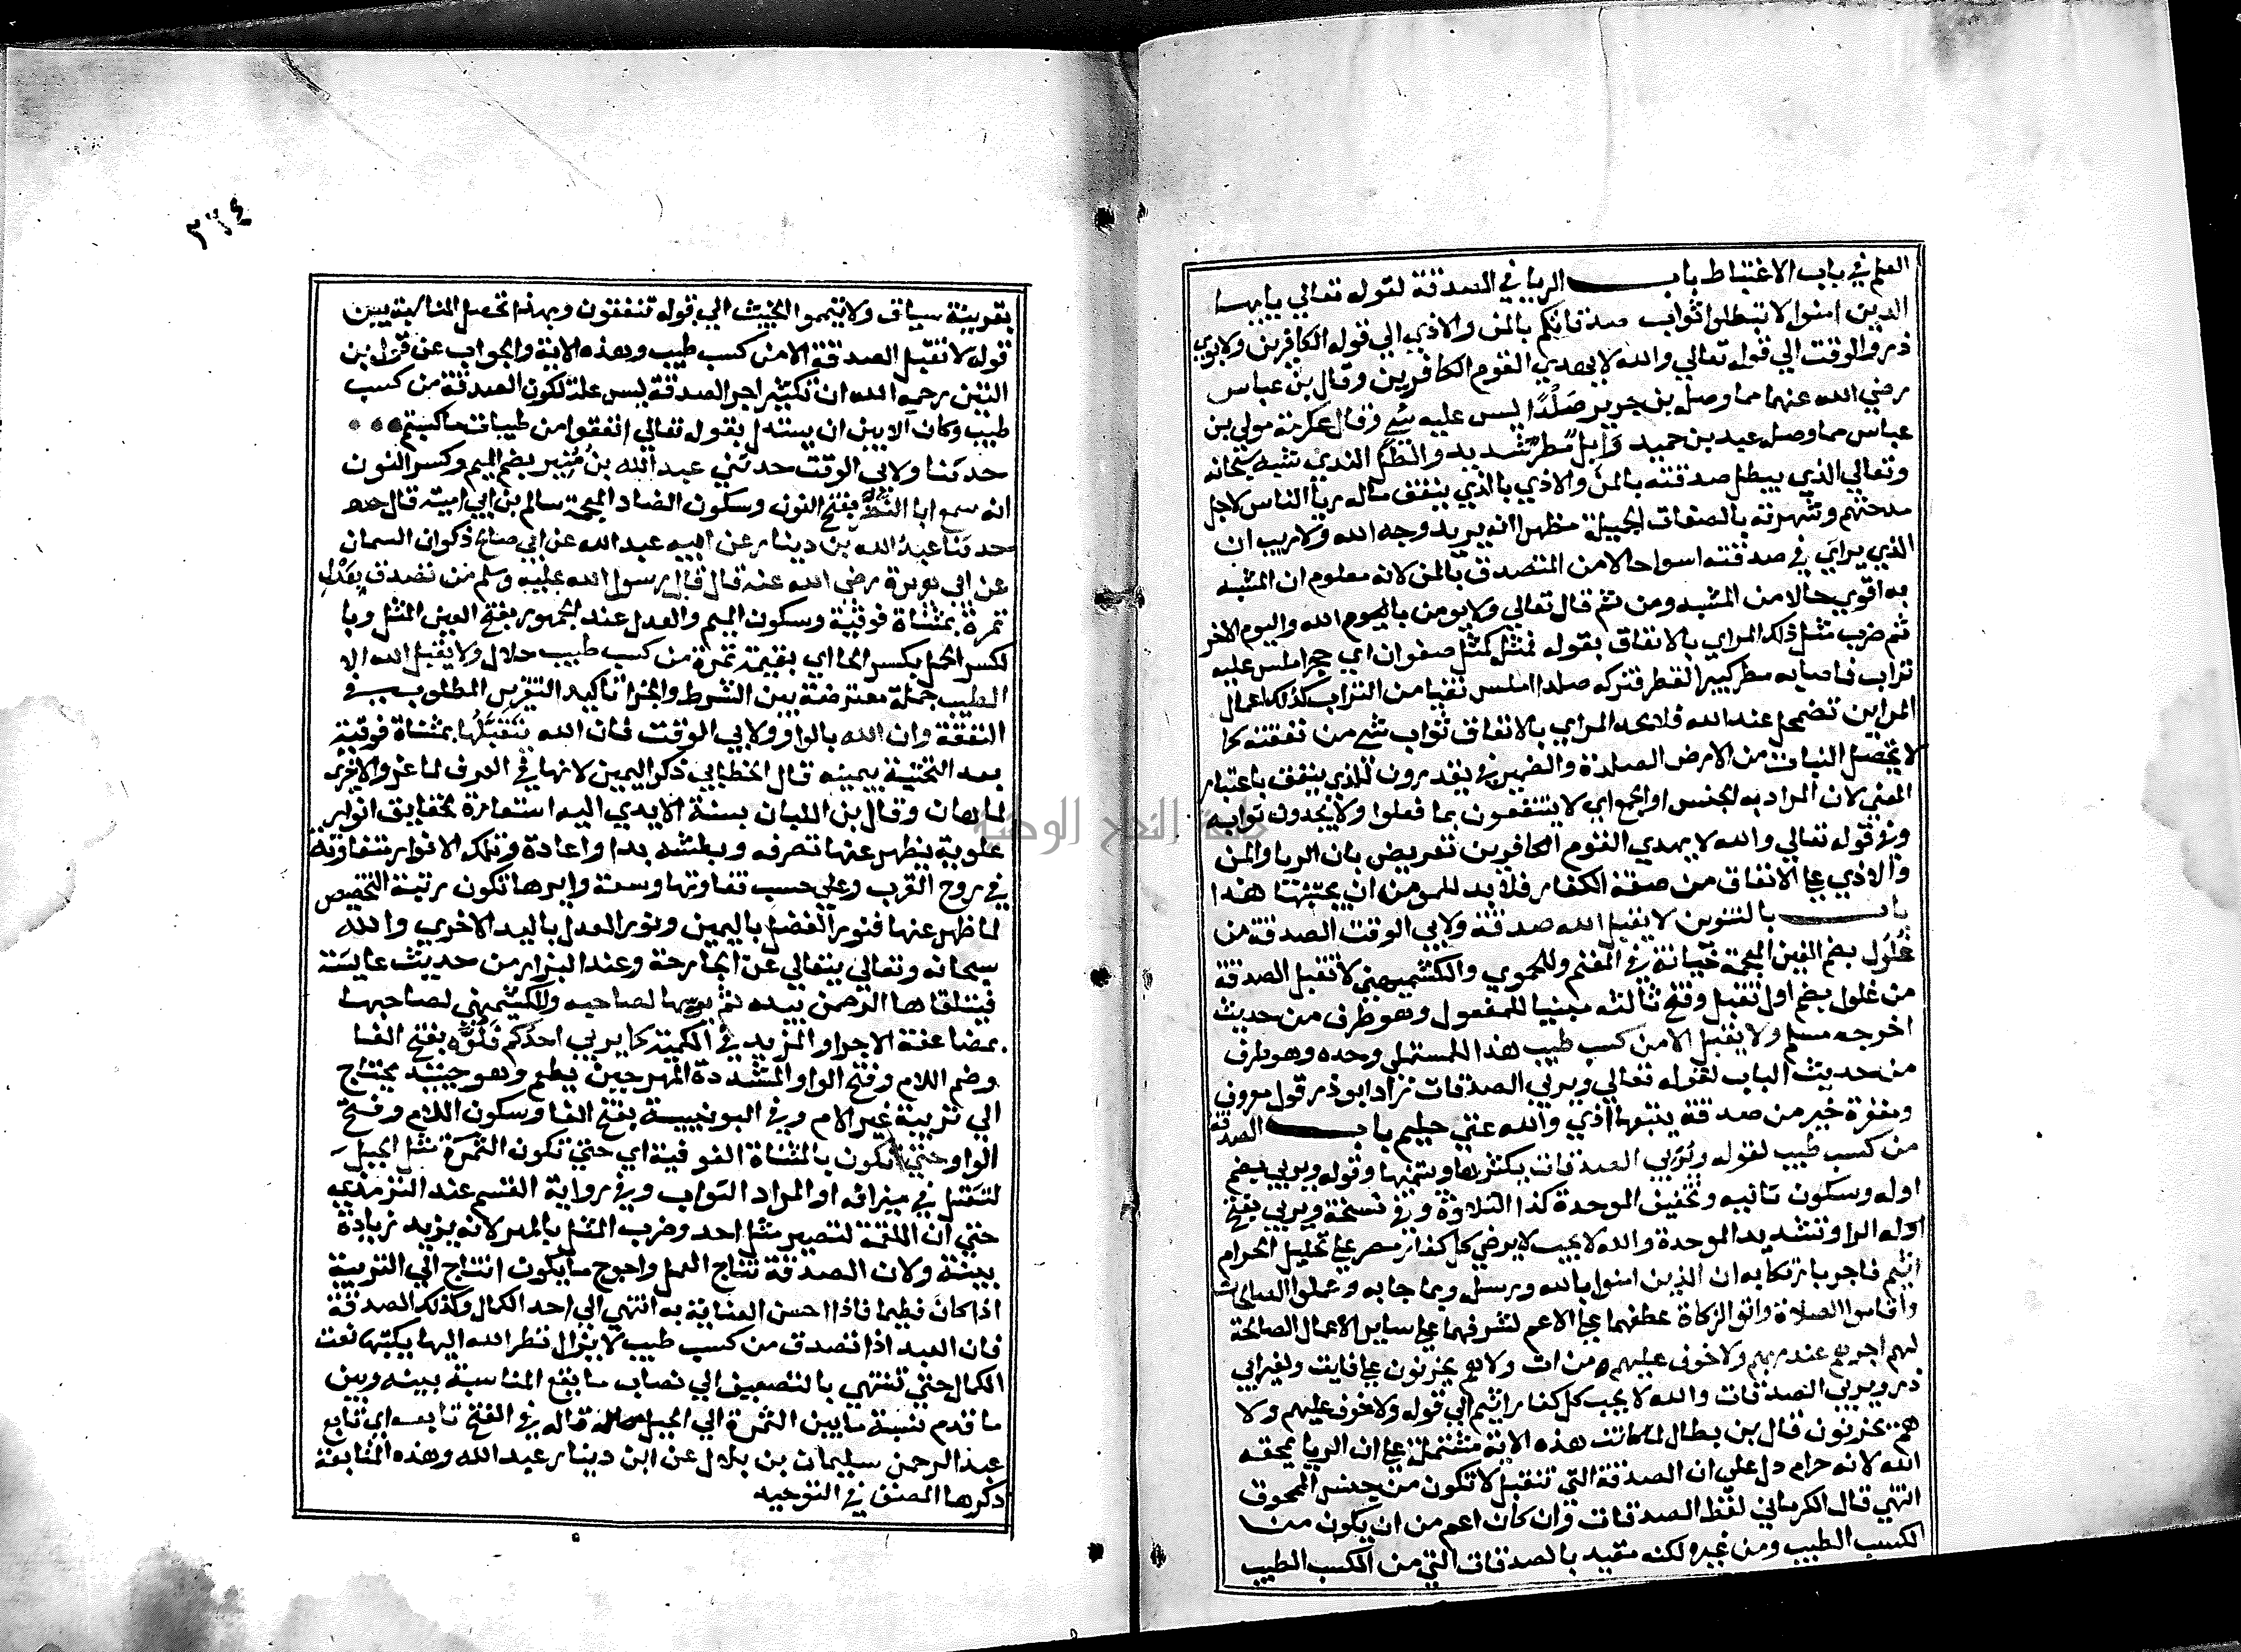 العلم في باب الاغتباط باب الريا في الصدقة لقوله تعالي يا يها
الدين امنوا لا تبطلوا ثواب صدقاتكم بالمن والاذي الي قوله الكافرين ولابوي
ذر والوقت الي قوله تعالي والله لا يهدي القوم الكافرين وقال بن عباس
رضي الله عنهما مما وصله بن جرير صَلْدًا ليس عليه شي وقال عكرمة مولي بن
عباس مما وصله عبد بن حميد وَابل مطر شديد والطل الندي شبه سبحانه
وتعالي الذي يبطل صدقته بالمن والاذي بالذي ينفق ماله ريا الناس لاجل
مدحتهم وشهرته بالصفات الجميلة مظهرا انه يريد وجه الله ولا ريب ان
الذي يراي في صدقته اسوا حالا من المتصدق بالمن لانه معلوم ان المشبه
به اقوي حالا من المشبه ومن ثم قال تعالي ولا يومن بالله واليوم الاخر
ثم ضرب مثل ذلك المراي بالانفاق بقوله فمثله كمثل صفوان اي حجر املس عليه
تراب فاصابه مطر كبير القطر فتركه صلدا املس نقيا من التراب كذلك اعمال
المراين تضمحل عند الله فلا يجد المراي بالانفاق ثواب شي من نفقته كما
لا يحصل النبات من الارض الصلدة والضمير في يقدرون للذي ينفق باعتبار
المعني لان المراد به الجنس او الجمع اي لا ينتفعون بما فعلوا ولا يجدون ثوابه
وفي قوله تعالي والله لا يهدي القوم الكافرين تعريض بان الريا والمن
والاذي علي الانفاق من صفة الكفار فلا بد للمومن ان يجتنبها هذا
باب بالتنوين لا يقبل الله صدقة ولابي الوقت الصدقة من
غُلُول بضم الغين المعجمة خيانة في المغنم وللحموي والكشميهني لا تقبل الصدقة
من غلول بضم اول تقبل وفتح ثالثه مبنيا للمفعول وهو طرف من حديث
اخرجه مسلم ولا يقبل الا من كسب طيب هذا للمستملي وحده وهو طرف
من حديث الباب لقوله تعالي ويربي الصدقات زاد ابو ذر قول معروف
ومغفرة خير من صدقة يتبعها اذي والله غني حليم باب الصدقة
من كسب طيب لقوله ويُربي الصدقات يكثرها وينميها وقوله ويربي بضم
اوله وسكون ثانيه وتخفيف الموحدة كذا التلاوة وفي نسخة ويربي بفتح
اوله الرا وتشديد الموحدة والله لا يحب لا يرضي كل كفار مصر علي تحليل الحرام
اثيم فاجر بارتكابه ان الذين امنوا بالله ورسله وبما جا به وعملوا الصالحات
واقاموا الصلاة واتوا الزكاة عطفهما علي الاعم لشرفهما علي ساير الاعمال الصالحة
لهم اجرهم عند ربهم ولا خوف عليهم من ات ولا هم يحزنون علي فايت ولغير ابي
ذر ويربي الصدقات والله لا يحب كل كفار اثيم الي قوله ولا خوف عليهم ولا
هم يحزنون قال بن بطال لما كانت هذه الاية مشتملة علي ان الربا يمحقه
الله لانه حرام دل علي ان الصدقة التي تتقبل لا تكون من جنس الممحوق
انتهي قال الكرماني لفظ الصدقات وان كان اعم من ان يكون من
الكسب الطيب ومن غيره لكنه مقيد بالصدقات التي من الكسب الطيب
٣٦٤
بقرينة سياق ولا تيمموا الخبيث الي قوله تنفقون وبهذا تحصل المناسبة بين
قوله لا تقبل الصدقة الا من كسب طيب وهذه الاية والجواب عن قول بن
التين رحمه الله ان تكثير اجر الصدقة ليس علة لكون الصدقة من كسب
طيب وكان الابين ان يستدل بقوله تعالي انفقوا من طيبات ما كسبتم
حدثنا ولابي الوقت حدثني عبد الله بن مُنِير بضم الميم وكسر النون
انه سمع ابا النضر بفتح النون وسكون الضاد المعجمة سالم بن ابي امية قال
حدثنا عبد الله بن دينار عن ابيه عبد الله عن ابي صالح ذكوان السمان
عن ابي هريرة رضي الله عنه قال قال رسول الله عليه وسلم من تصدق بِعَدْلِ
تمرة بمثناة فوقية وسكون الميم والعدل عند الجمهور بفتح العين المثل وبا
لكسر الحمل بكسر الحا اي بقيمة تمرة من كسب طيب حلال ولا يقبل الله الا
الطيب جملة معترضة بين الشرط والجزا تاكيد التقرير المطلوب في
النفقة وان الله بالواو ولابي الوقت فان الله يَتَقَبَّلُها بمثناة فوقية
بعد التحتية بيمينه قال الخطابي ذكر اليمين لانها في العرف لما عز والاخري
لما هان وقال بن اللبان بسنة الايدي اليه استعارة لحقايق انوار
علوية يظهر عنها تصرفه وبطشه بدا واعادة وتلك الانوار متفاوتة
في روح القرب وعلي حسب تفاوتها وسعة وايرها تكون رتبة التخصيص
لما ظهر عنها فنور الفضل باليمين ونور العدل باليد الاخري والله
سبحانه وتعالي يتعالي عن الجارحة وعند البزار من حديث عايشة
فيتلقاها الرحمن بيده ثم يربيها لصاحبه وللكشميهني لصاحبها
بمضاعفة الاجر او المزيد في الكمية كما يربي احدكم فَلُوَّه بفتح الفا
وضم اللام وفتح الواو المشددة المهر حين يطم وهو حينيذ يحتاج
الي تربية غير الام وفي اليونينية بفتح الفا وسكون اللام وفتح
الواو حتي تكون بالمثناة الفوقية اي حتي تكون الثمرة مثل الجبل
لتثقل في ميزانه او المراد الثواب وفي رواية القسم عند الترمذي
حتي ان اللقمة لتصير مثل احد وضرب المثل بالمهر لانه يزيد زيادة
بينة ولان الصدقة نتاج العمل واحوج ما يكون انتاج الي التربية
اذا كان فطيما فاذا احسن العناية به انتهي الي احد الكمال وكذلك الصدقة
فان العبد اذا تصدق من كسب طيب لا يزال نظر الله اليها يكتبها نعت
الكمال حتي تنتهي بالتضعيف الي نصاب ما يقع المناسبة بينه وبين
ما قدم نسبة ما بين الثمرة الي الجبل قاله في الفتح تابعه اي تابع
عبد الرحمن سليمان بن بلال عن ابن دينار عبد الله وهذه المتابعة
ذكرها المصنف في التوحيد